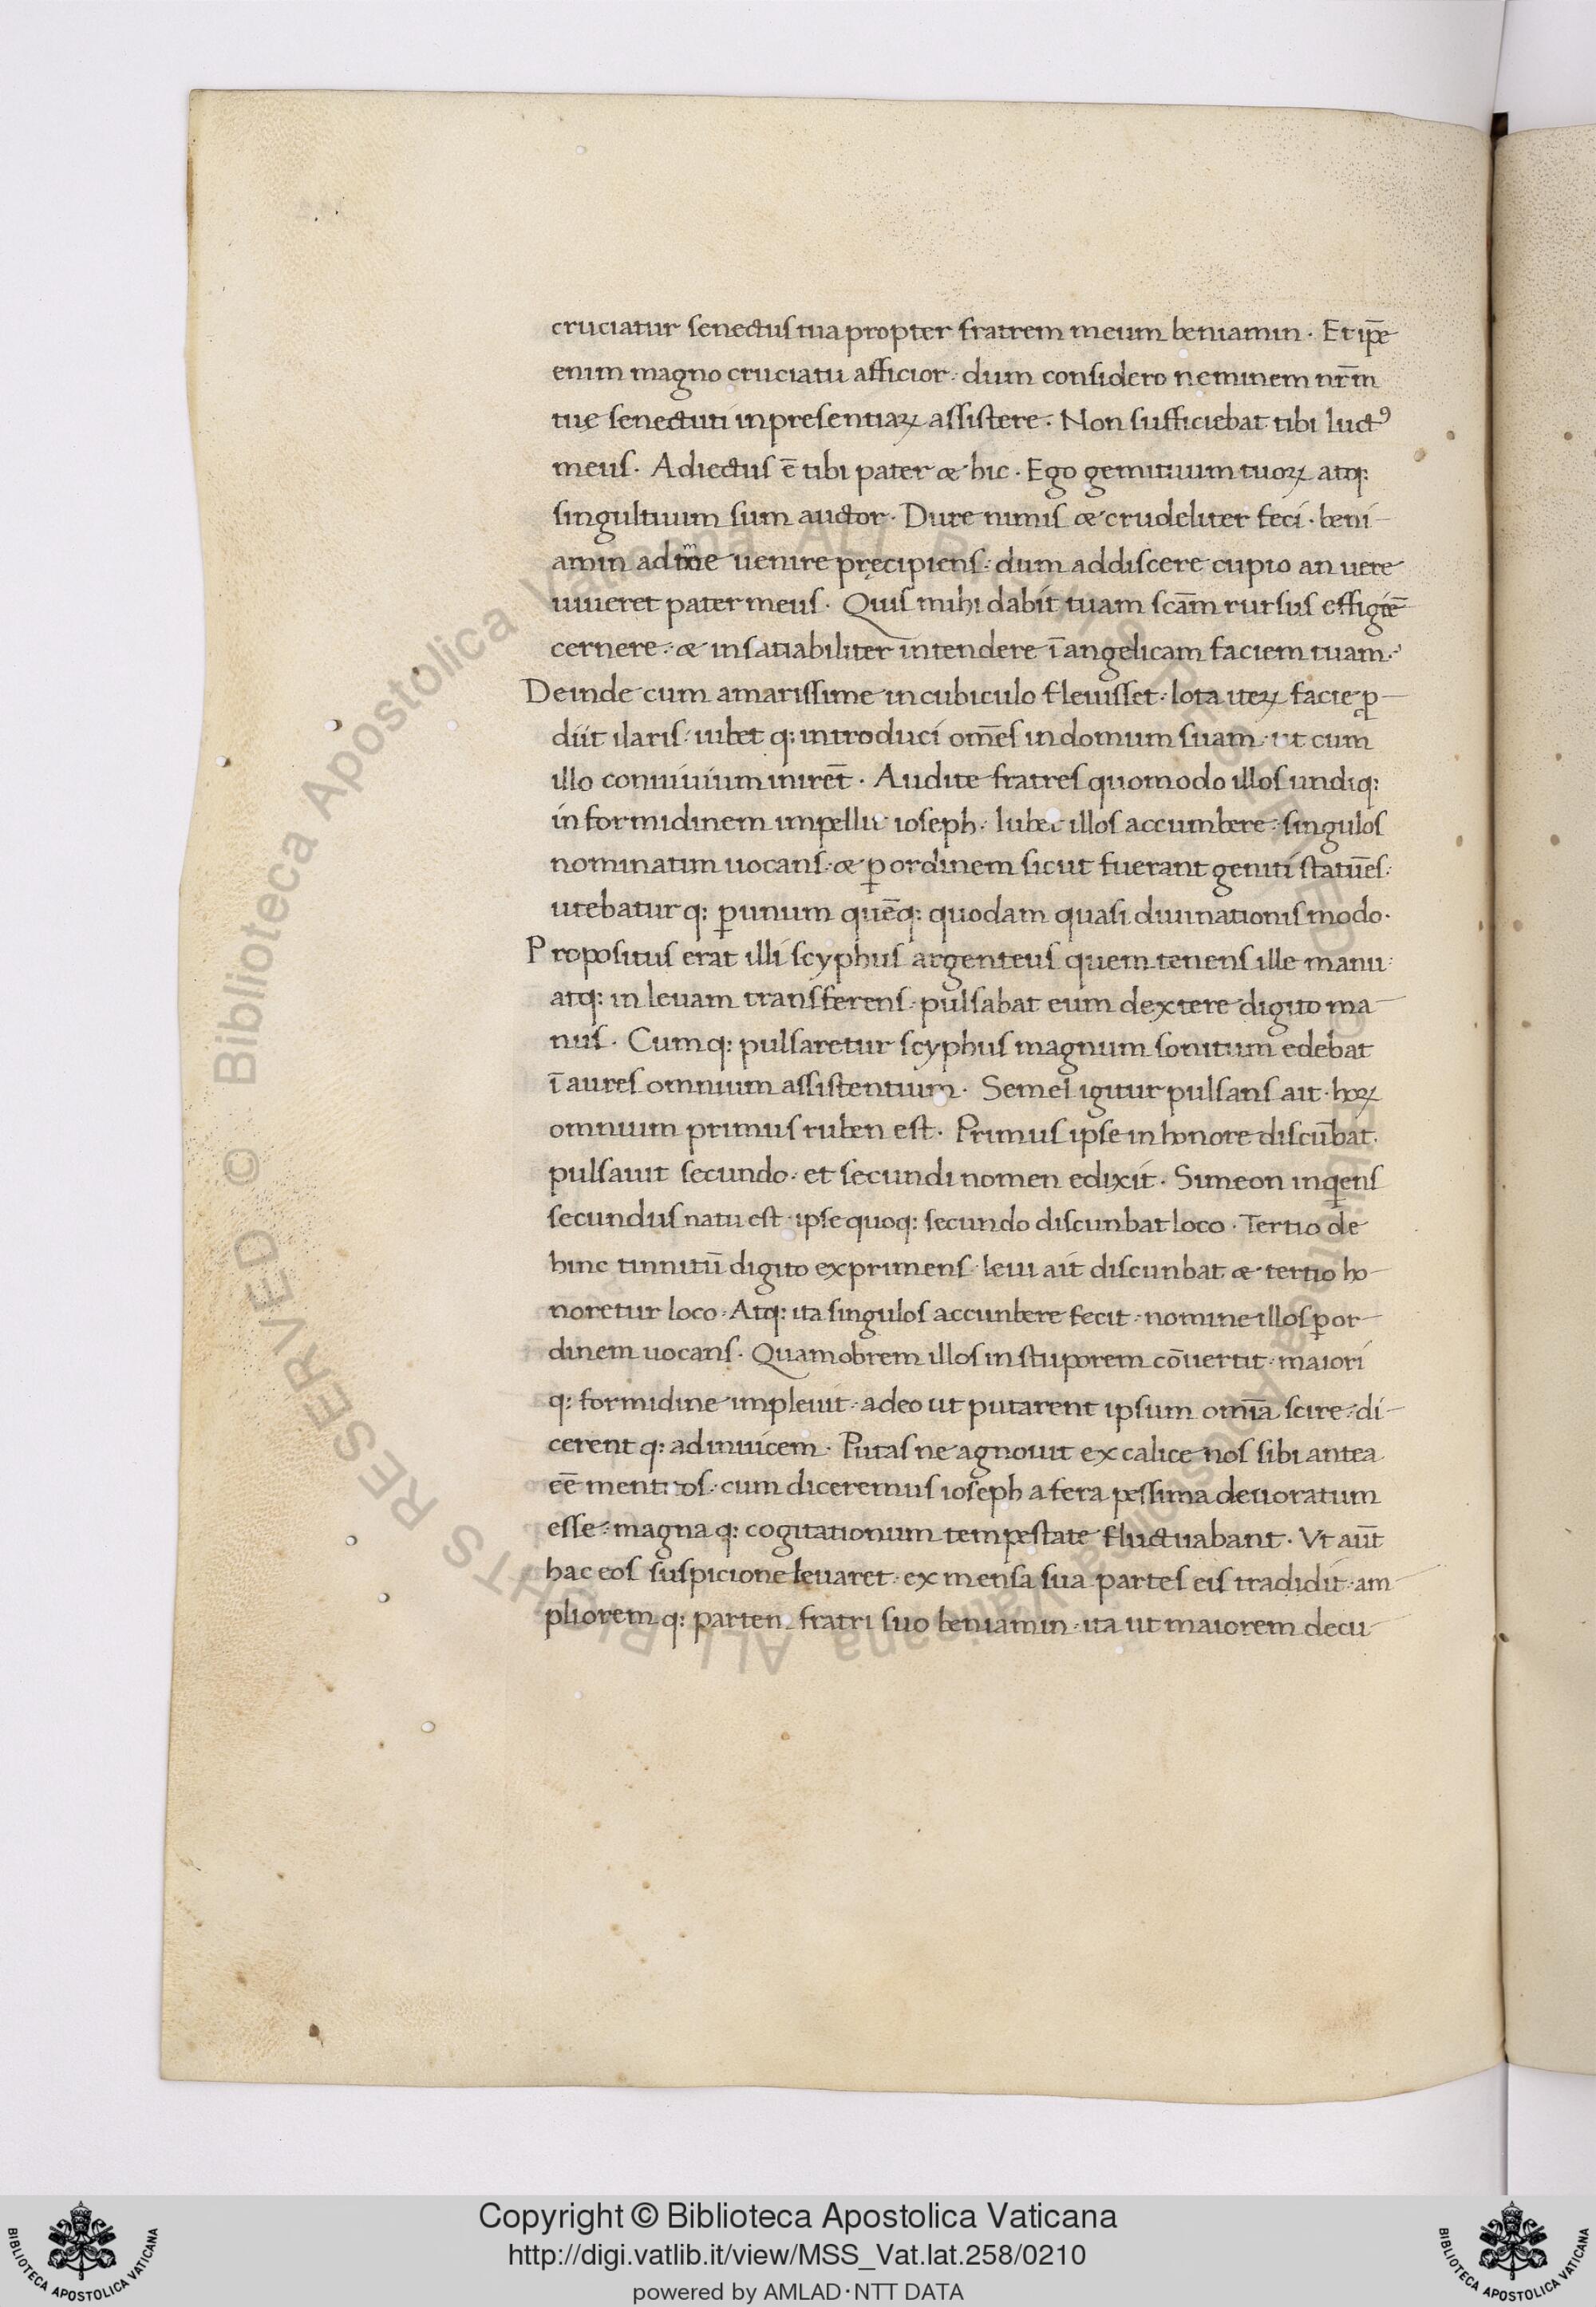 cruciatur senectus tua propter fratrem meum beniamin · Et ip̄e
enim magno cruciatu afficior · dum considero neminem nr̄m
tuę senectuti inpresentiaꝝ assistere · Non sufficiebat tibi luctꝰ
meus · Adiectus ē tibi pater & hic · Ego gemituum tuoꝝ atq:
singultuum sum auctor · Dure nimis & crudeliter feci · beni
amin ad me uenire pręcipiens · dum addiscere cupio an uere
uiueret pater meus · Quis mihi dabit tuam scām rursus effigiē
cernere · & insatiabiliter intendere ī angelicam faciem tuam ·
Deinde cum amarissime in cubiculo fleuisset · lota iteꝝ facie ꝓ
diit ilaris · iubet q: introduci om̄es in domum suam · ut cum
illo conuiuium inirēt · Audite fratres quomodo illos undiq:
in formidinem impellit ioseph · Iubet illos accumbere · singulos
nominatim uocans · & ꝑ ordinem sicut fuerant geniti statuēs ·
utebatur q: ꝑ unum quēq: quodam quasi diuinationis modo ·
Propositus erat illi scyphus argenteus quem tenens ille manu ·
atq: in leuam transferens · pulsabat eum dextere digito ma
nus · Cumq: pulsaretur scyphus magnum sonitum edebat
ī aures omnium assistentium · Semel igitur pulsans ait · hoꝝ
omnium primus ruben est · Primus ipse in honore discūbat ·
pulsauit secundo · et secundi nomen edixit · Simeon inq̇ens
secundus natu est · ipse quoq: secundo discunbat loco · Tertio de
hinc tinnitū digito exprimens · leui ait discunbat & tertio ho
noretur loco · Atq: ita singulos accunbere fecit · nomine illos ꝑ or
dinem uocans · Quamobrem illos in stuporem cōuertit · maiori
q: formidine impleuit · adeo ut putarent ipsum omīa scire · di
cerent q: adinuicem · Putas ne agnouit ex calice nos sibi antea
eē mentitos · cum diceremus ioseph a fera pessima deuoratum
esse · magna q: cogitationum tempestate fluctuabant · Vt aūt
hac eos suspicione leuaret · ex mensa sua partes eis tradidit · am
pliorem q: partem fratri suo beniamin · ita ut maiorem decu
Copyright © Biblioteca Apostolica Vaticana
http://digi.vatlib.it/view/MSS_Vat.lat.258/0210
powered by AMLAD · NTT DATA